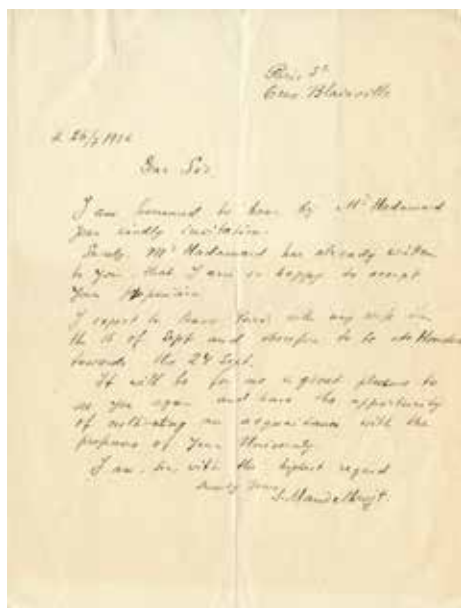 Paris 5e
6 rue Blainville
26/7 1926
Dear Sir,
I am honoured to hear by Mr Hadamard
your kindly invitation.
Surely Mr Hadamard has already written
to you that I am so happy to accept
your
I expect to leave Paris with my wife on
the of Sept and therefore to be at Houston
towards the 24 Sept.
It will be for me a great pleasure to
see you again and have the opportunity
of an acquaintance with the
of your University
I am, Sir, with the highest regard
yours
S. Mandelbrojt.